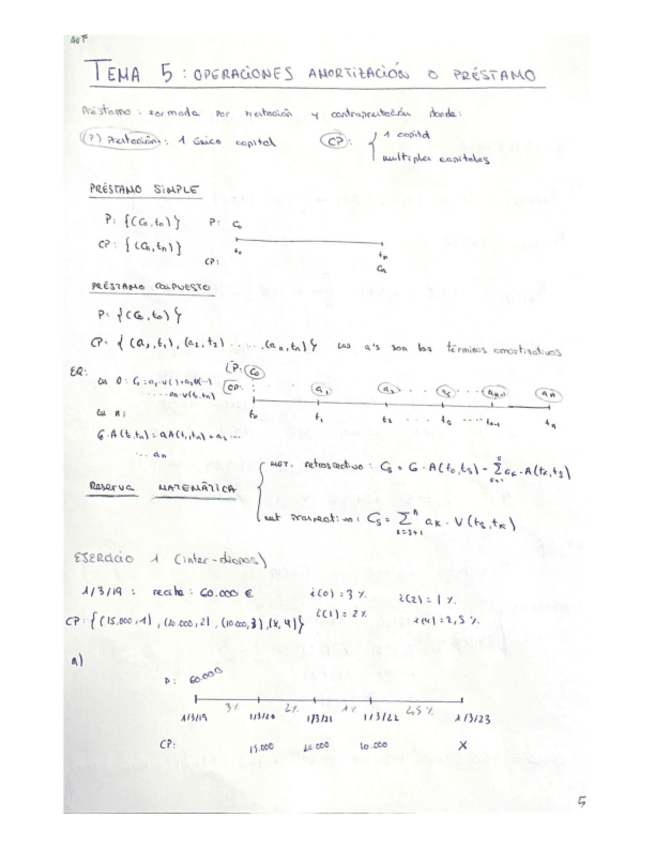 TEMA 5: OPERACIONES AMORTIZACIÓN O PRÉSTAMO
Préstamo: formada por prestación y contraprestación donde:
(P) Prestación: 1 único capital CP: { 1 capital
multiples capitales
PRÉSTAMO SIMPLE
P: {(C₀, t₀)} P: C₀
CP: {(Cₙ, tₙ)} t₀ tₙ
CP: Cₙ
PRÉSTAMO COMPUESTO
P: {(C₀, t₀)}
CP: {(a₁, t₁), (a₂, t₂) ..... (aₙ, tₙ)} Las a's son los términos amortizativos
EQ: P: C₀
en 0: CP: a₁ a₂ ... aₛ ... aₙ₋₁ aₙ
t₀ t₁ t₂ ... tₛ ... tₙ₋₁ tₙ
en n:
... aₙ
RESERVA MATEMÁTICA
MET. retrospectivo: Cₛ = C₀ · A(t₀, tₛ) - Σ aₖ · A(tₖ, tₛ)
met prospectivo: Cₛ = Σ aₖ · V(tₛ, tₖ)
EJERCICIO 1 (inter-diapos)
1/3/19: recibe: 60.000 € i(0) = 3% i(2) = 1%
CP: {(15.000, 1), (20.000, 2), (10.000, 3), (X, 4)} i(1) = 2% i(4) = 2,5%
a)
P: 60.000
3% 2% 1% 2,5%
1/3/19 1/3/20 1/3/21 1/3/22 1/3/23
CP: 15.000 20.000 10.000 X
5